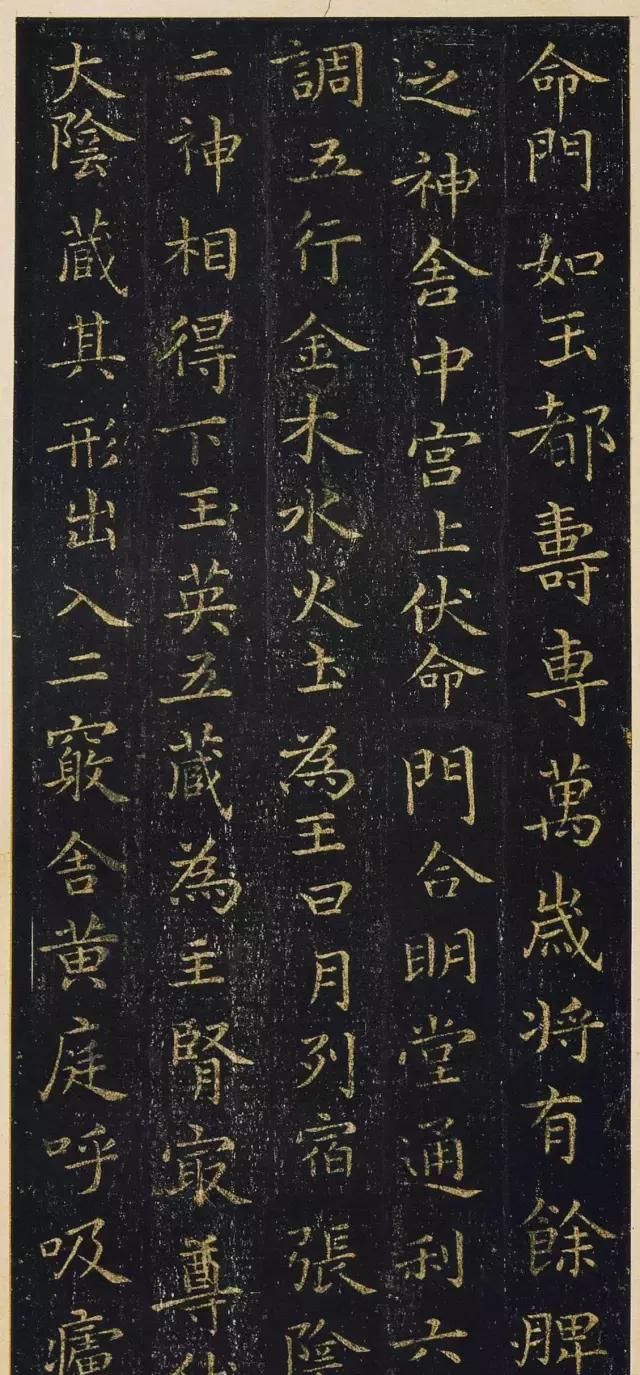 命門如玉都壽専萬歲将有餘脾
之神舍中宮上伏命門合明堂通利六
調五行金木水火圡為王日月列宿張陰
二神相得下玉英五藏為主腎㝡尊
大陰藏其形出入二竅舍黄庭呼吸